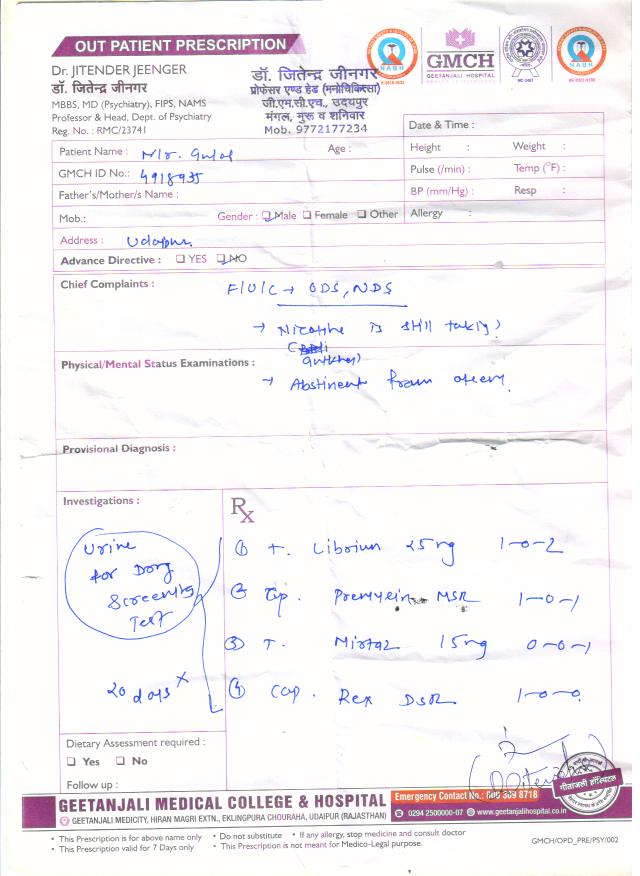 OUT PATIENT PRESCRIPTION
Dr. JITENDER JEENGER
डॉ. जितेन्द्र जीनगर
MBBS, MD (Psychiatry), FIPS, NAMS
Professor & Head, Dept. of Psychiatry
Reg. No. : RMC/23741
डॉ. जितेन्द्र जीनगर
प्रोफेसर एण्ड हेड (मनोचिकित्सा)
जी.एम.सी.एच., उदयपुर
मंगल, गुरू व शनिवार
Mob. 9772177234
NABH
GMCH
GEETANJALI HOSPITAL
NABH
Date & Time :
Patient Name : Mr.
Age :
Height : Weight :
GMCH ID No.: 4918935
Pulse (/min) : Temp (°F) :
Father's/Mother's Name :
BP (mm/Hg) : Resp :
Mob.:
Gender : Male Female Other
Allergy :
Address : Udaipur
Advance Directive : YES NO
Chief Complaints : F/U/C → ODS, NDS
→ Nicotine is still taking
Physical/Mental Status Examinations :
→ Abstinent from
Provisional Diagnosis :
Investigations :
Urine
for Drug
Screening
Test
20 days x
Rx
① T. Librium 25 mg 1-0-2
② MSR 1-0-1
③ T. Mirtaz 15 mg 0-0-1
④ Cap. Rex DSR 1-0-0
Dietary Assessment required :
Yes No
Follow up :
गीतांजली हॉस्पिटल
GEETANJALI MEDICAL COLLEGE & HOSPITAL
GEETANJALI MEDICITY, HIRAN MAGRI EXTN., EKLINGPURA CHOURAHA, UDAIPUR (RAJASTHAN)
Emergency Contact No.:
0294 2500000-07 www.geetanjalihospital.co.in
• This Prescription is for above name only • Do not substitute • If any allergy, stop medicine and consult doctor
• This Prescription valid for 7 Days only • This Prescription is not meant for Medico-Legal purpose.
GMCH/OPD_PRE/PSY/002